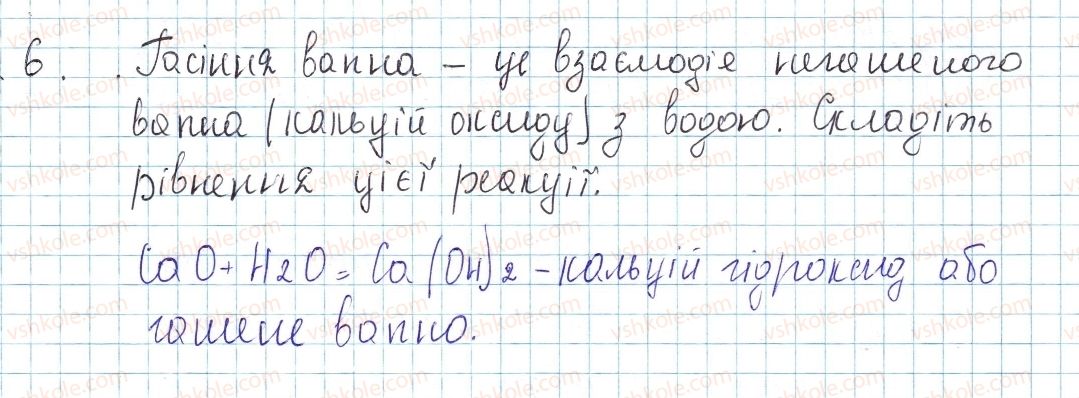 6. Гасіння вапна – це взаємодія негашеного
вапна (кальцій оксиду) з водою. Складіть
рівнення цієї реакції.
CaO + H2O = Ca(OH)2 – кальцій гідроксид або
гашене вапно.